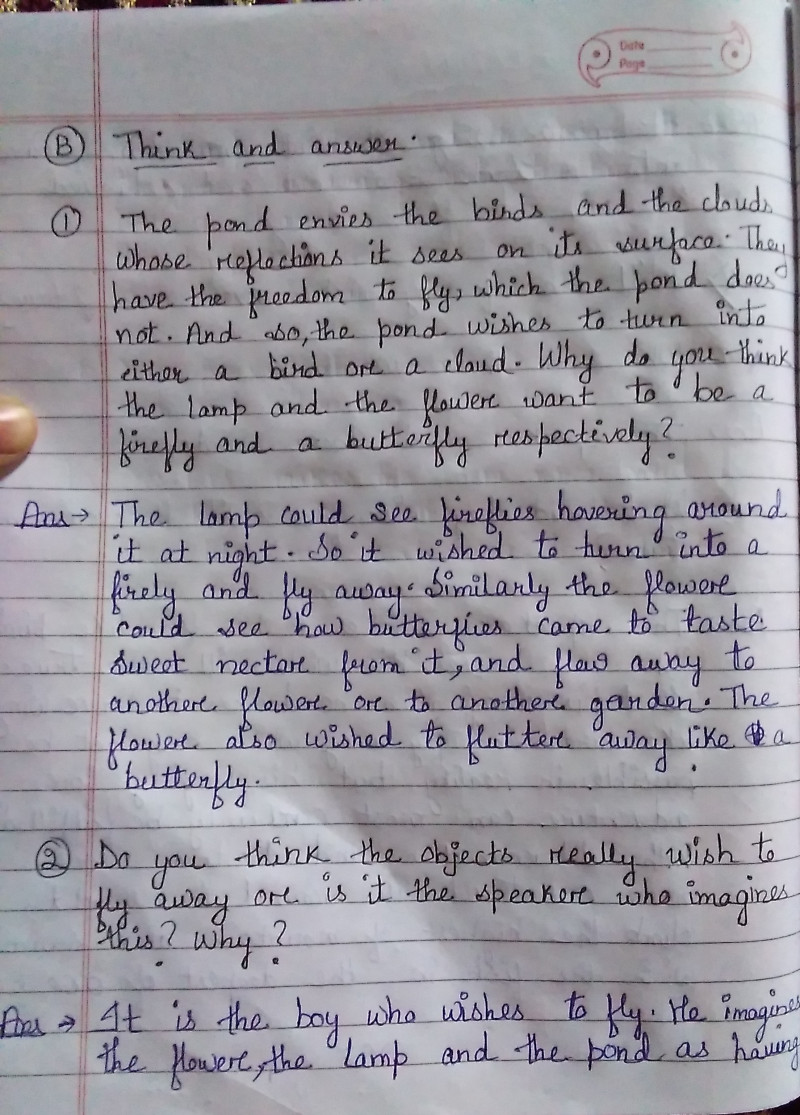 Date
Page
B Think and answer.
1 The pond envies the birds and the clouds
whose reflections it sees on its surface. They
have the freedom to fly, which the pond does
not. And so, the pond wishes to turn into
either a bird or a cloud. Why do you think
the lamp and the flower want to be a
firefly and a butterfly respectively?
Ans → The lamp could see fireflies hovering around
it at night. So it wished to turn into a
firely and fly away. Similarly the flower
could see how butterflies came to taste
sweet nectar from it, and flew away to
another flower or to another garden. The
flower also wished to flutter away like a
butterfly.
2 Do you think the objects really wish to
fly away or is it the speaker who imagines
this? Why?
Ans → It is the boy who wishes to fly. He imagines
the flower, the lamp and the pond as having